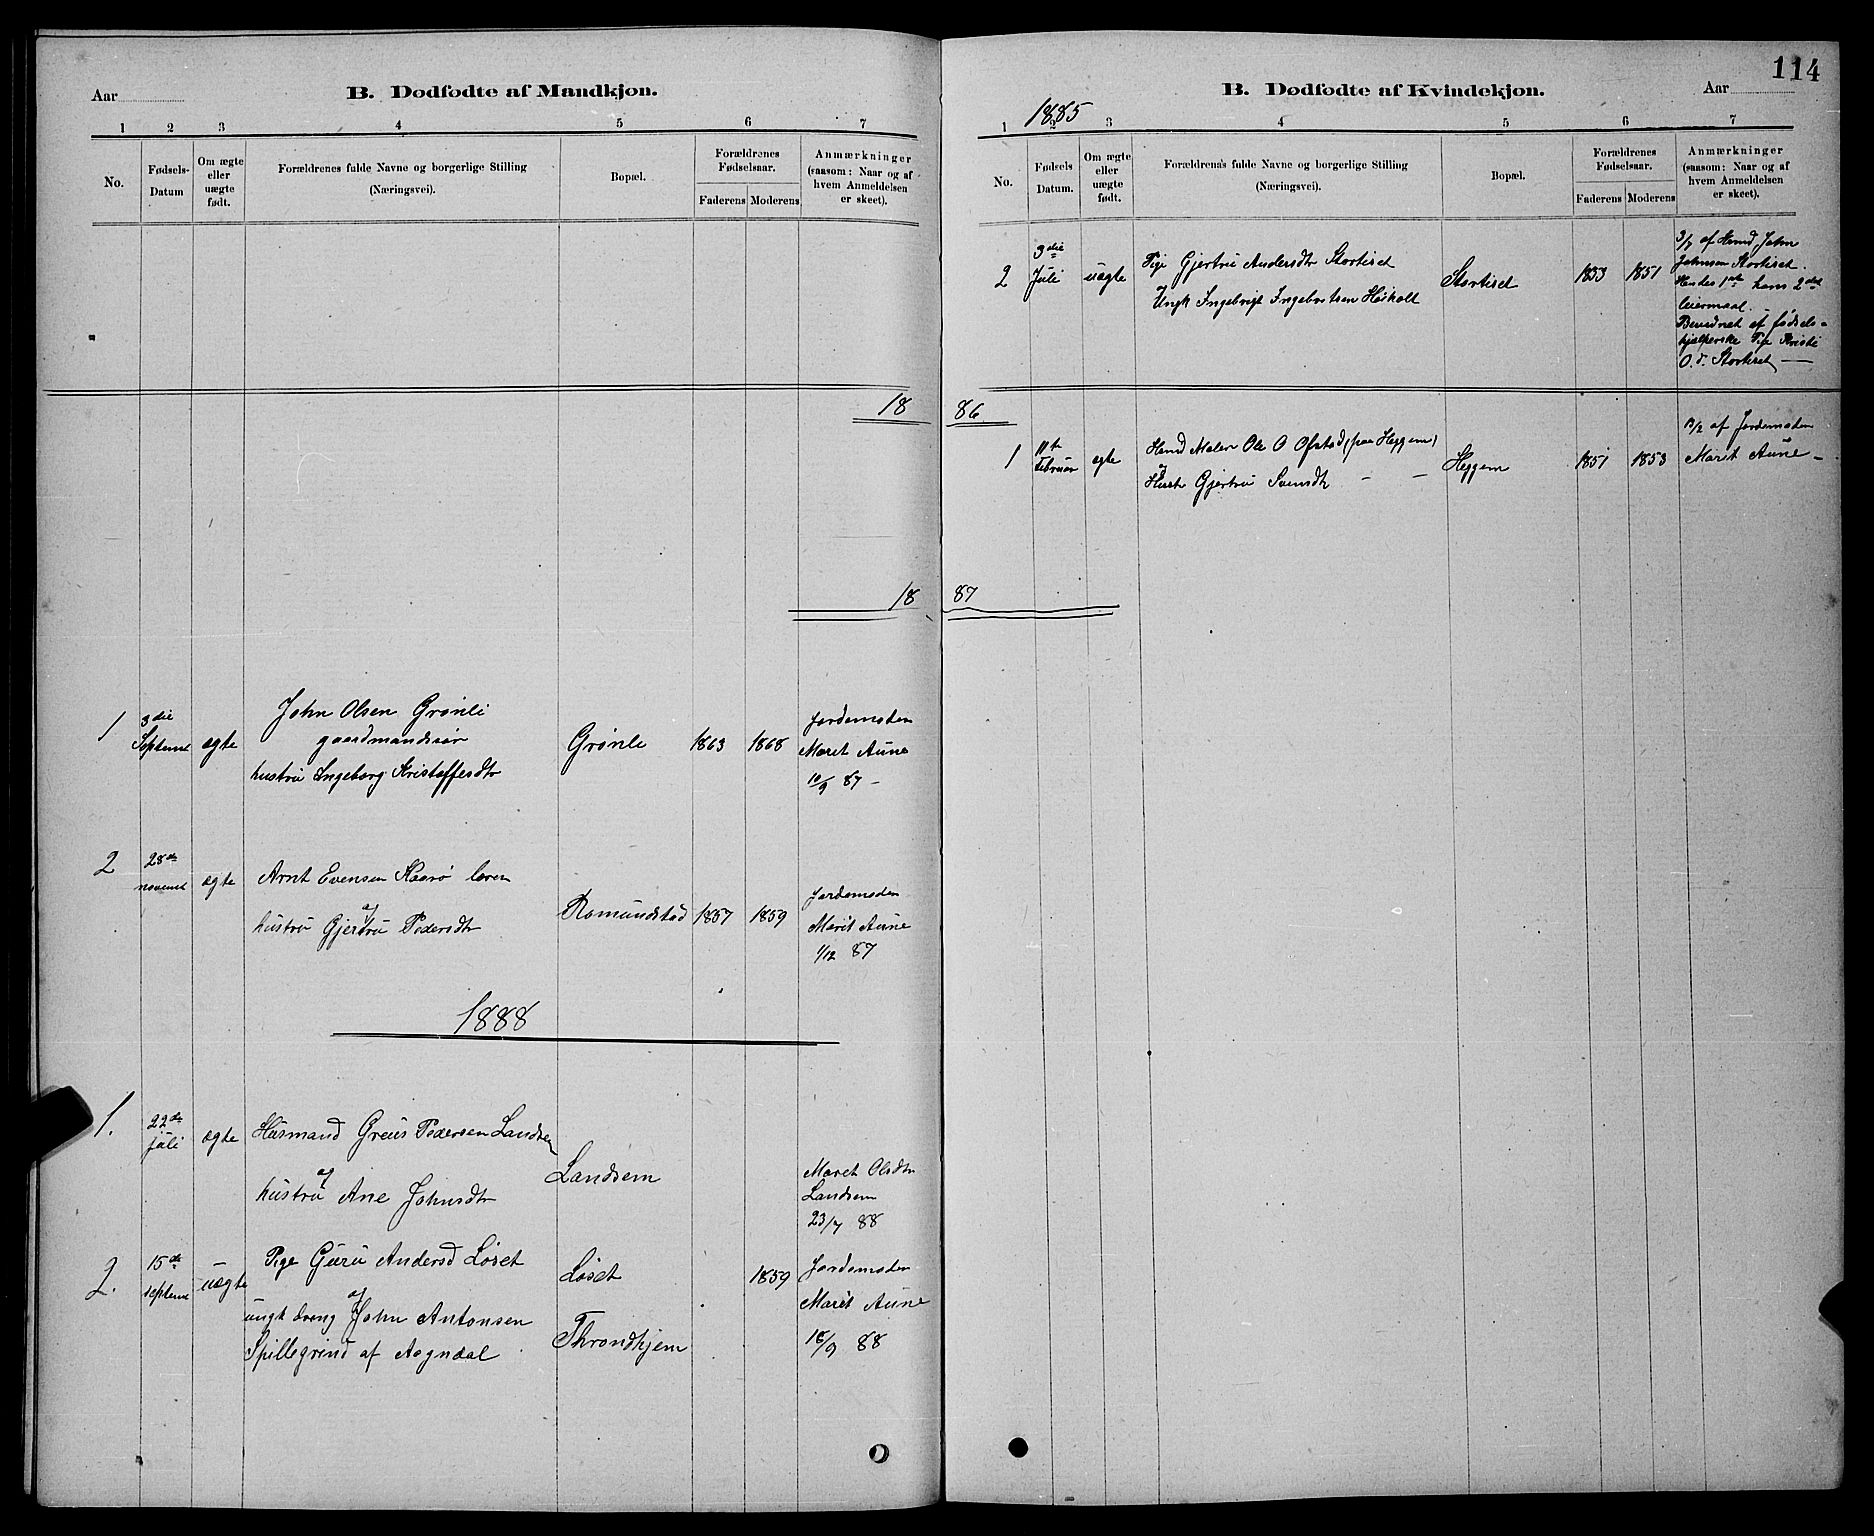 Aar
B. Dødfødte af Mandkjøn.
1 2 3 4 5 6 7
No.
Fødsels-
Datum
Om ægte
eller
uægte
født.
Forældrenes fulde Navne og borgerlige Stilling
(Næringsvei).
Bopæl.
Forældrenes
Fødselsaar.
Faderens Moderens
Anmærkninger
(saasom: Naar og af
hvem Anmeldelsen
er skeet).
18
18
1
3die
Septemt
ægte
John Olsen Grønli
gaardmandssøn
hustru Ingeborg Kristoffesdtr
Grønli
1863 1868
Jordemoden
Maret Aune
10/9 87 -
2
28de
novemt
ægte
Arnt Evensen Kaarø
af
hustru Gjertru Pedersdtr
Romundstad
1857 1859
Jordemoden
Marit Aune
1/12 87
1888
1.
22de
juli
ægte
Husmand Greus Pedersen Landsem
af
hustru Ane Johnsdtr
Landsem
Maret Olsdtr
Landsem
23/7 88
2.
15de
septemt
uægte
Pige Guru Andersd Løset
af
ungk dreng John Antonsen
Spillegrind af Aagndal
Løset
Throndhjem
1859
Jordemoden
Marit Aune
18/9 88
114
B. Dødfødte af Kvindekjøn.
Aar
1885
1 2 3 4 5 6 7
No.
Fødsels
Datum.
Om ægte
eller
uægte
født.
Forældrena's fulde Navne og borgerlige Stilling
(Næringsvei).
Bopæl.
Forældrenes
Fødselsaar.
Faderens Moderens
Anmærkninger
(saasom: Naar og af
hvem Anmeldelsen
er skeet).
2
3die
Juli
uægte
Pige Gjertru Andersdtr Stortiset
Ungk Ingebrigt Ingebrtsen Høiholt
Stortiset
1853 1851
3/7 af Hmd John
Johnsen Stortiset.
Hendes 1ste hans 2det
leiermaal.
Bevidnet af fødsels-
hjælperske Pige Kristi
O.d. Stortiset
86
1
11te
Februar
ægte
Hmd Maler Ole O Ofstad (paa Heggem)
og
Hust Gjertru Svendtr - -
Heggem
1851 1853
13/2 af Jordemoden
Marit Aune -
87